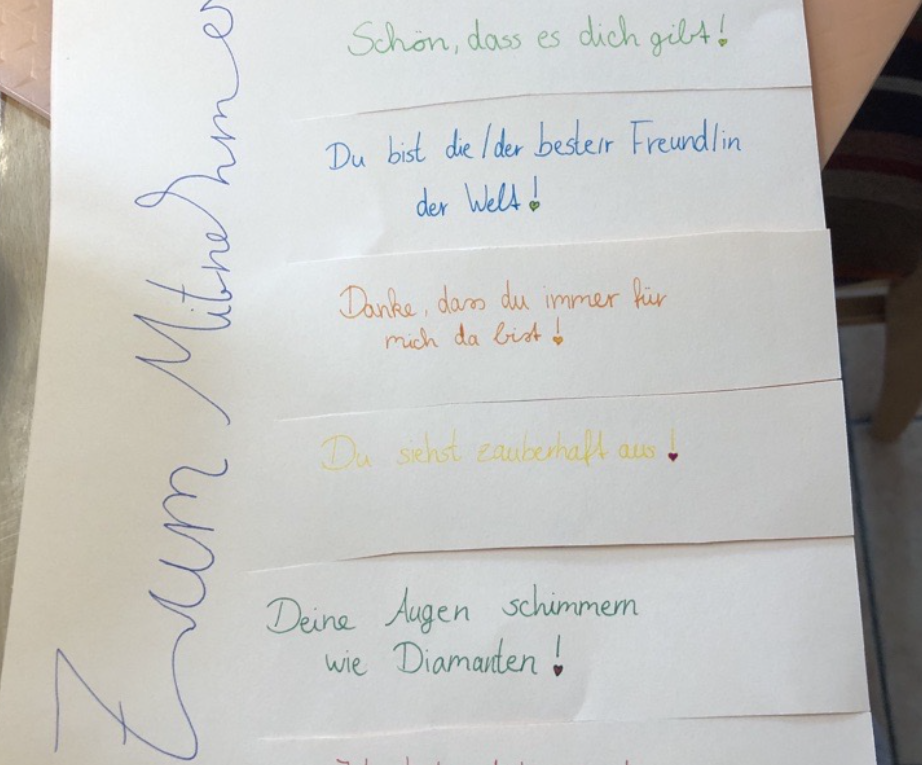 Zum Mitnehme
Schön, dass es dich gibt!
Du bist die/der beste/r Freund/in
der Welt!
Danke, dass du immer für
mich da bist!
Du siehst zauberhaft aus!
Deine Augen schimmern
wie Diamanten!